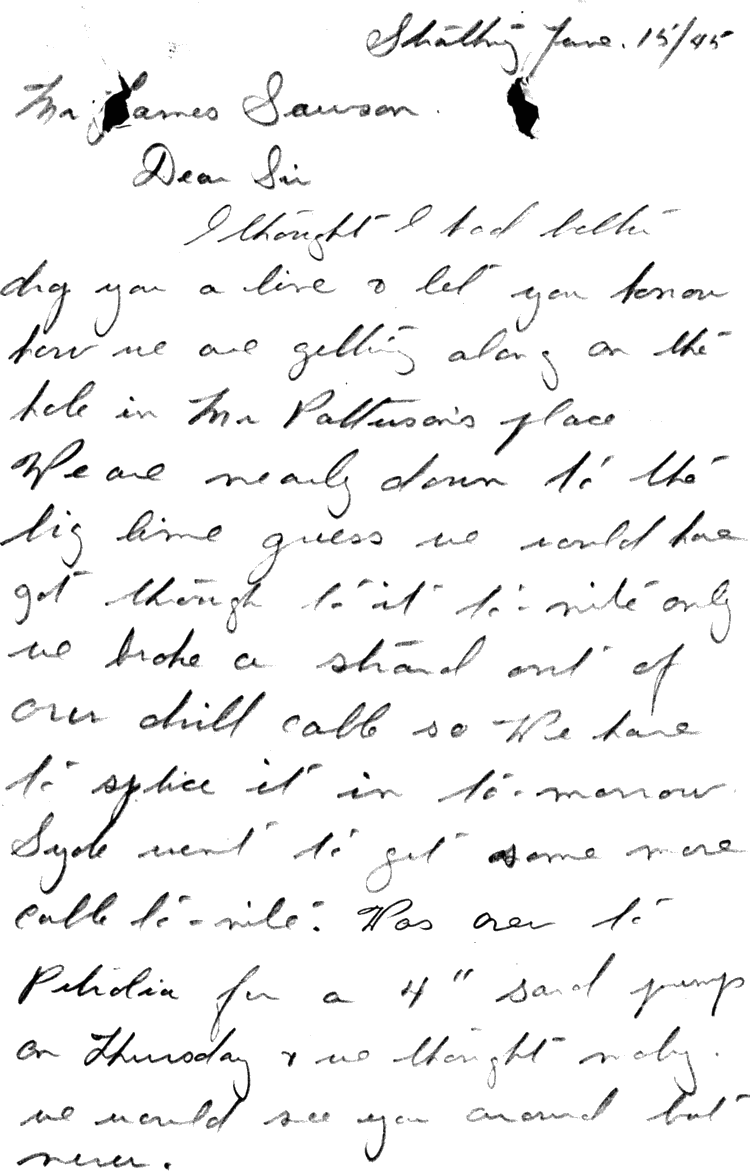 June. 15/45
Mr James Lawson.
Dear Sir
I thought I had better
drop you a line & let you know
how we are getting along on the
hole in Mr Patterson's place
We are nearly down to the
big lime guess we would have
got through to it to-nite only
we broke a strand out of
our drill cable so We have
to splice it in to-morrow.
Syde went to get some more
cable to-nite. Was over to
Petrolia for a 4" sand pump
on Thursday & we thought maby.
we would see you around but
never.